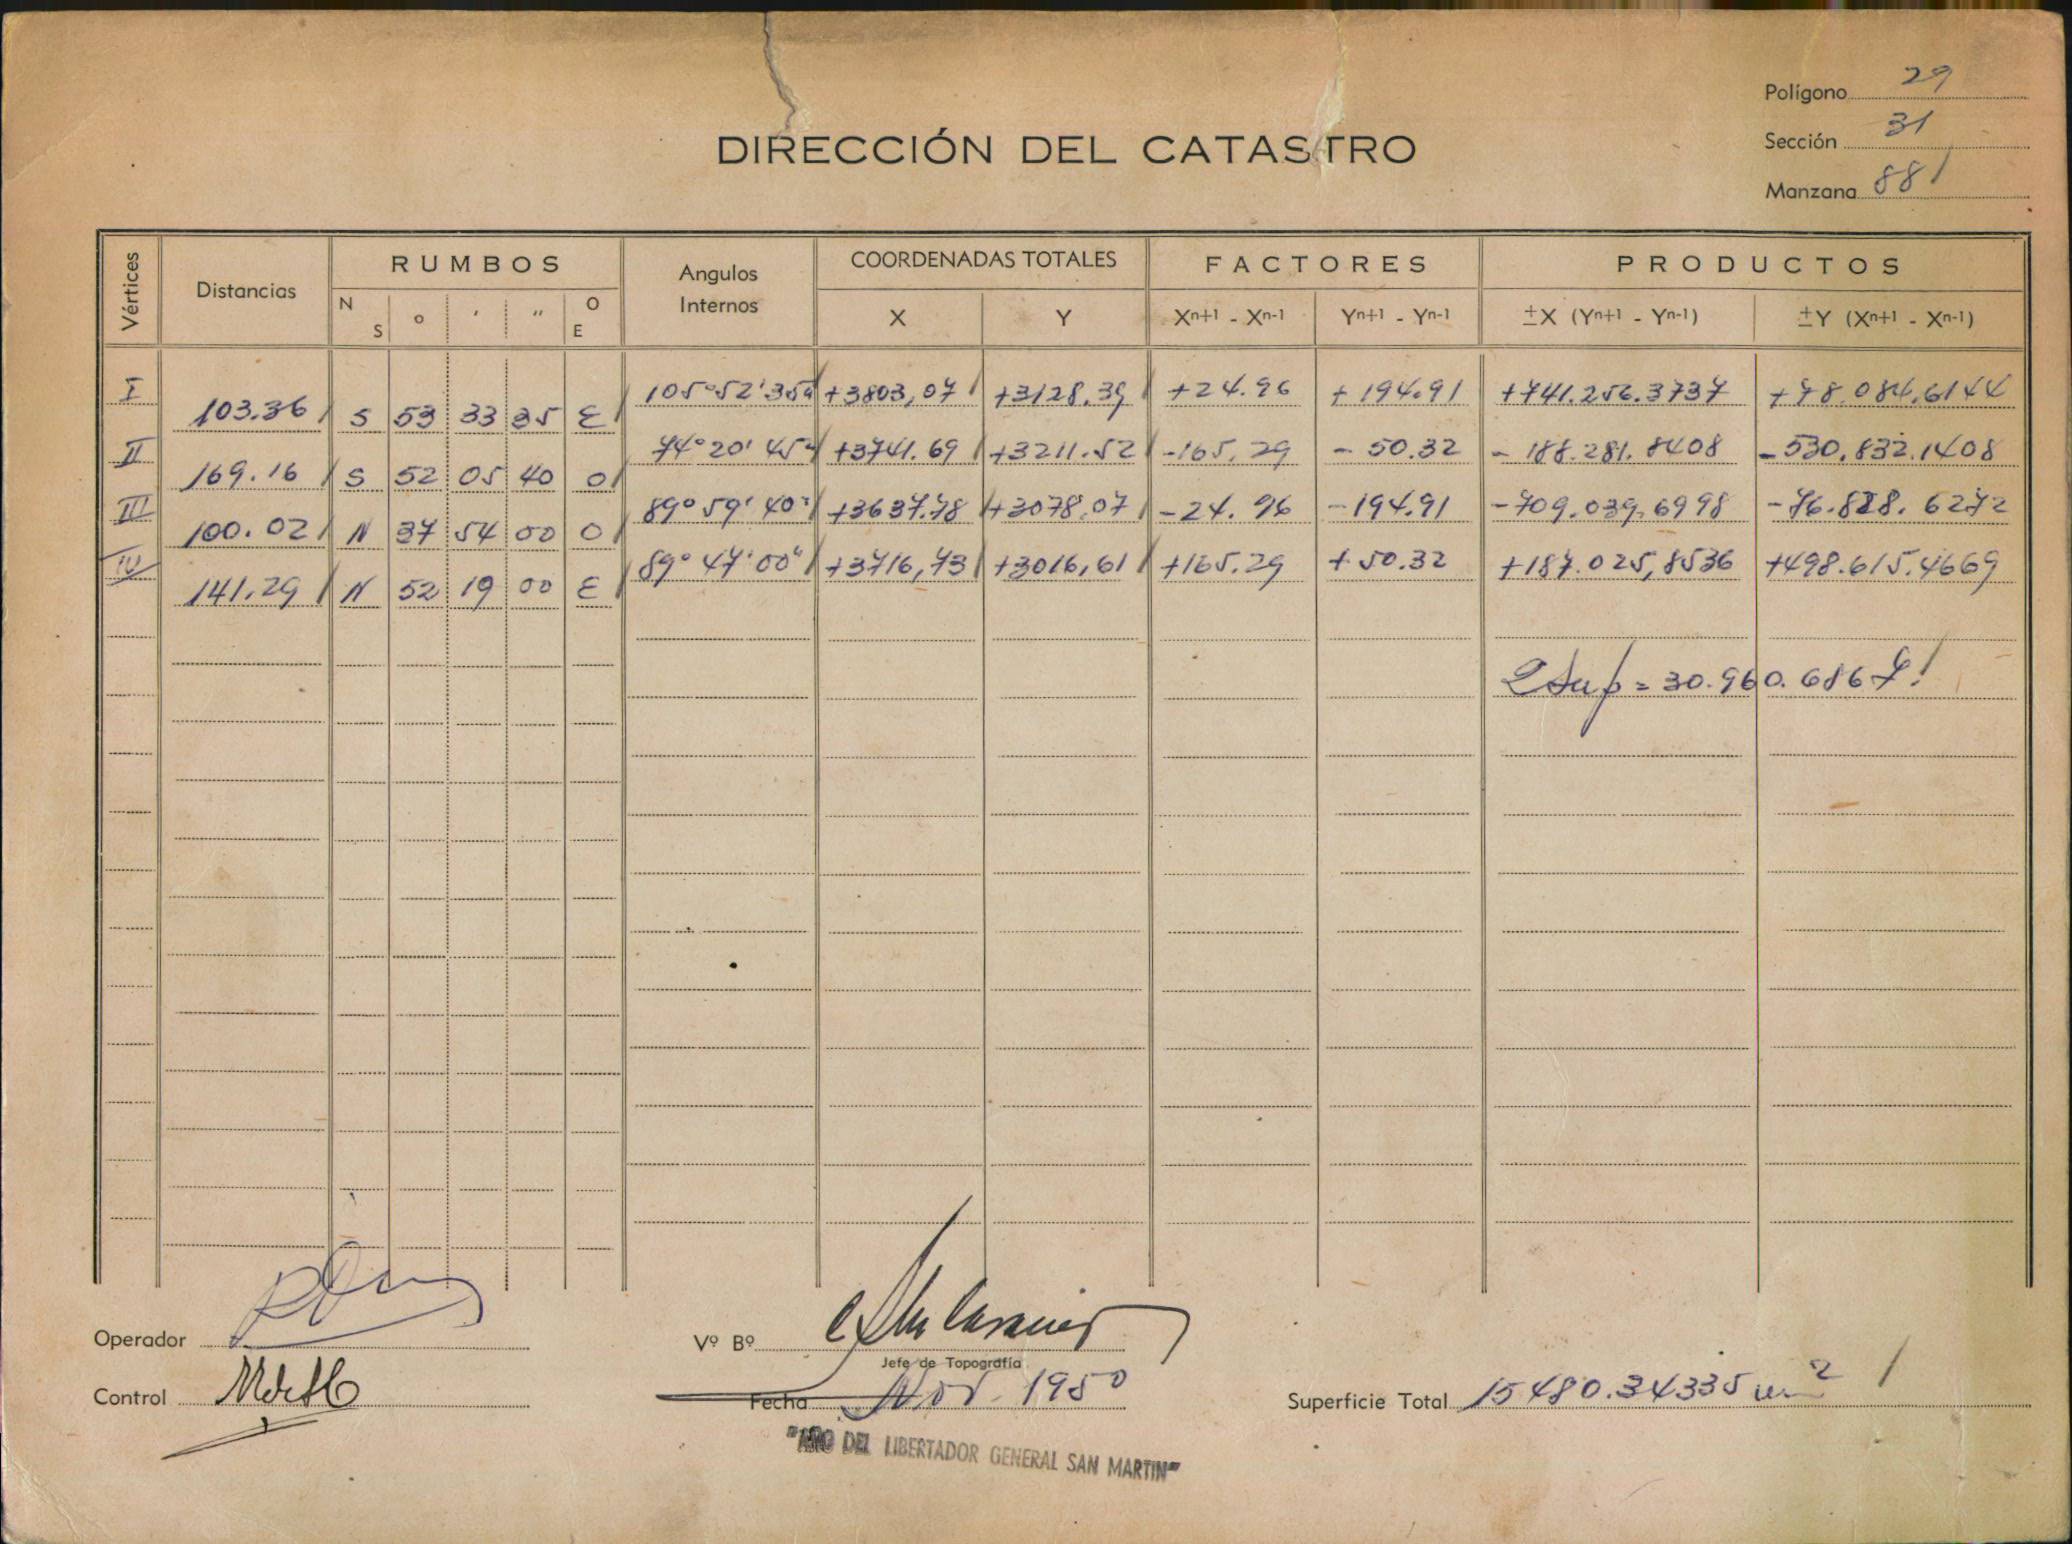 Polígono 29
Sección 31
Manzana 881
DIRECCIÓN DEL CATASTRO
Vértices Distancias RUMBOS Angulos Internos COORDENADAS TOTALES FACTORES PRODUCTOS
N S o ′ ″ O E X Y Xn+1 - Xn-1 Yn+1 - Yn-1 ±X (Yn+1 - Yn-1) ±Y (Xn+1 - Xn-1)
I 105°52'35" +3803,07 +3128.39 +24.96 +194.91 +741.256.3737 +78.084.6144
103.36 S 53 33 35 E
II 74°20'45" +3741.69 +3211.52 -165.29 -50.32 -188.281.8408 -530.832.1408
169.16 S 52 05 40 O
III 89°59'40" +3637.78 +3078.07 -24.96 -194.91 -709.039.6998 -76.828.6272
100.02 N 37 54 00 O
IV 89°47'00" +3716,73 +3016,61 +165.29 +50.32 +187.025,8536 +498.615.4669
141.29 N 52 19 00 E
2 Sup = 30.960.6867
Operador
Vº Bº
Jefe de Topografía
Control
Fecha Nov. 1950
Superficie Total 15480.34335 m2
"AÑO DEL LIBERTADOR GENERAL SAN MARTIN"